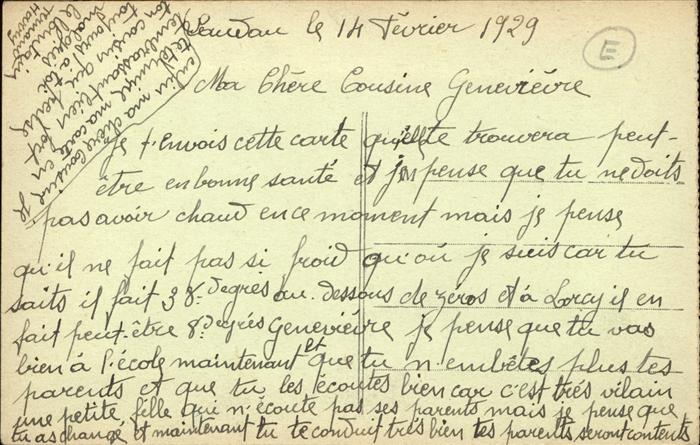 Landau le 14 Février 1929
E
Ma Chère Cousine Geneviève
je t'envois cette carte qu'elle te trouvera peut-
être en bonne santé et j'en pense que tu ne doits
pas avoir chaud en ce moment mais je pense
qu'il ne fait pas si froid qu'où je suis car tu
saits il fait 38 degrès au-dessous de zéros et à Lorcy il en
fait peut-être 8 degrès Geneviève je pense que tu vas
bien à l'école maintenant et que tu n'embêtes plus tes
parents et que tu les écoutes bien car c'est très vilain
une petite fille qui n'écoute pas ses parents mais je pense que
tu as changé et maintenant tu te conduit très bien tes parents seront contents
enfin ma chère Cousine je
te termine ma carte en
t'embrassant bien fort
ton cousin qui pense
toujours à toi